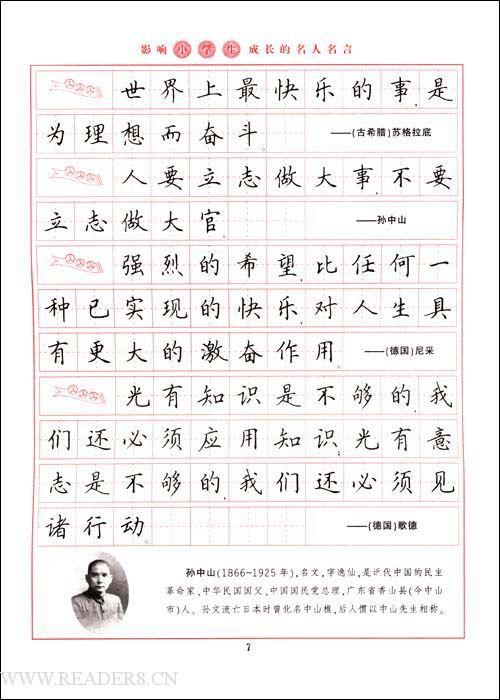 影响小学生成长的名人名言
世界上最快乐的事,是
为理想而奋斗。 ——(古希腊)苏格拉底
人要立志做大事,不要
立志做大官。 ——孙中山
强烈的希望,比任何一
种已实现的快乐,对人生具
有更大的激奋作用。 ——(德国)尼采
光有知识是不够的,我
们还必须应用知识;光有意
志是不够的,我们还必须见
诸行动。 ——(德国)歌德
孙中山(1866~1925年),名文,字逸仙,是近代中国的民主
革命家、中华民国国父、中国国民党总理,广东省香山县(今中山
市)人。孙文流亡日本时曾化名中山樵,后人惯以中山先生相称。
7
WWW.READER8.CN